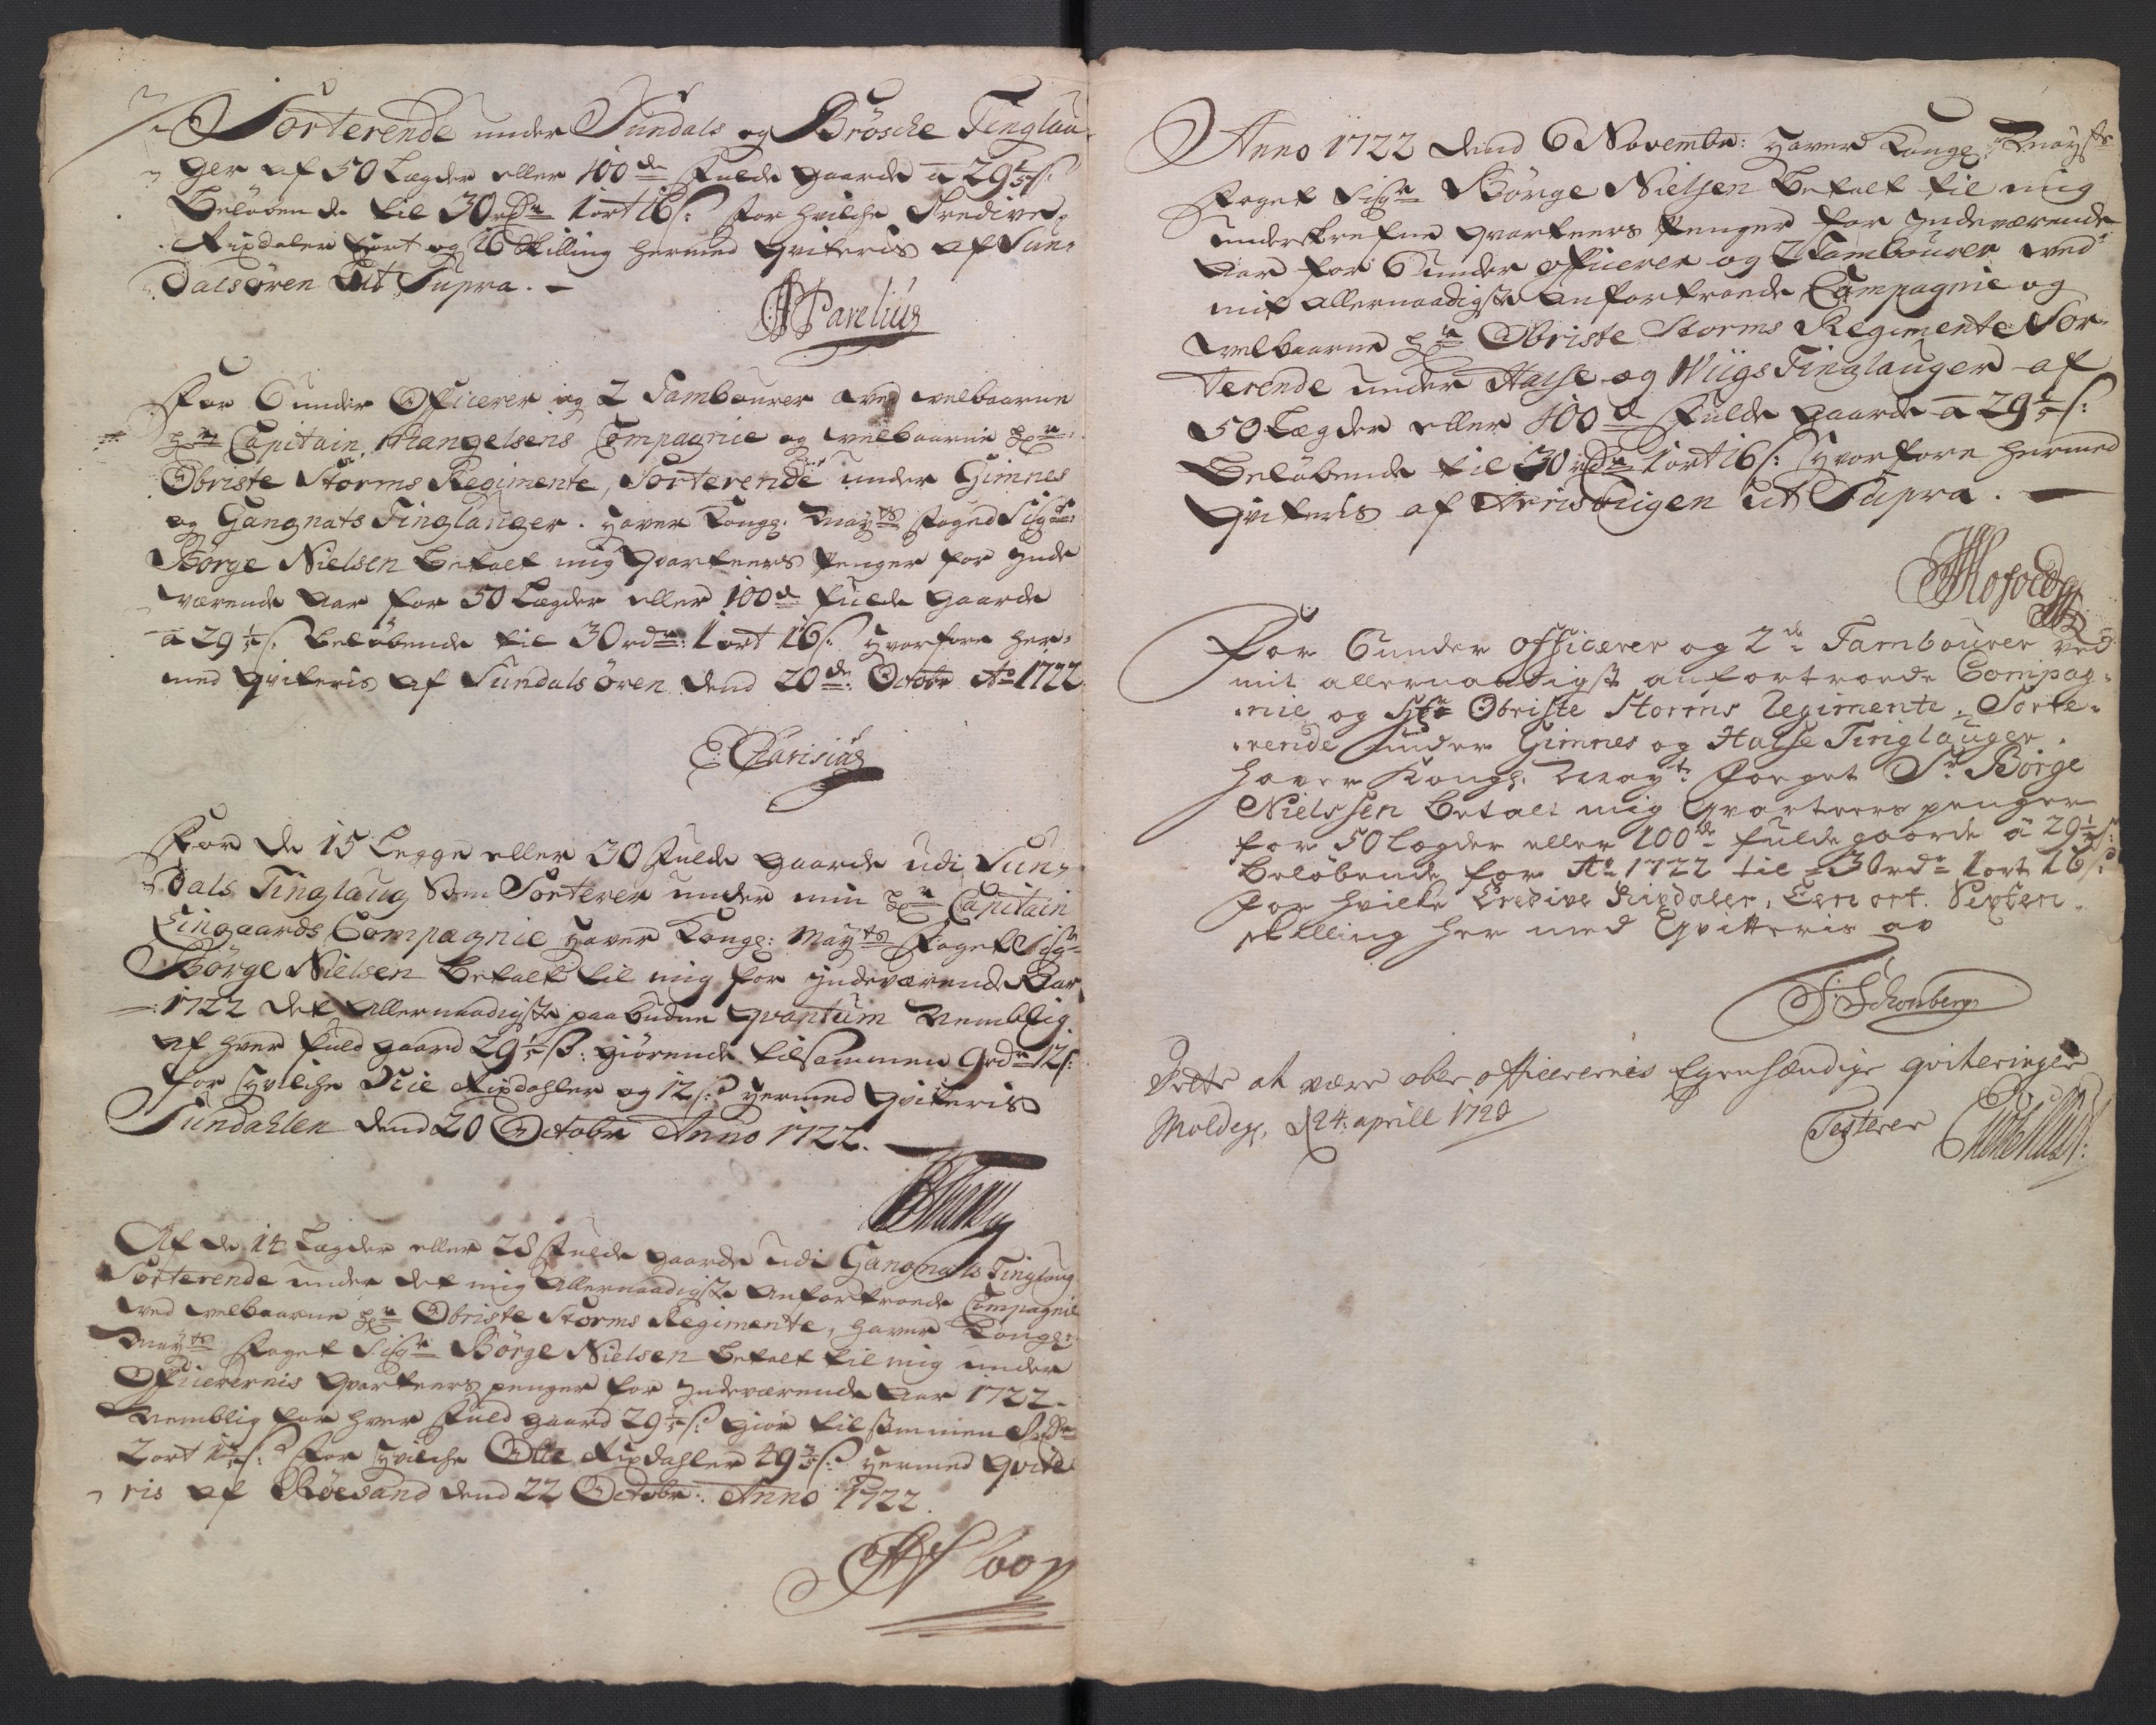 Sorterende under Sundals og Brøsche Tinglau-
ger af 50 Lægder eller 100de fulde gaarde a 29 1/5 s:
Beløbende til 30 rdr 1 ort 16 s: for hvilche Tredive
Rixdaler 1 ort og 16 skilling hermed Qviteris af Sun-
dalsøren Ut Supra. -
Parelius
For 6 under Officerer og 2 Tambourer ved velbaarne
Hr Capitain Mangelsens Compagnie og velbaarne Hr
Obriste Storms Regimente, Sorterende under Gimnes
og Gangnats Tinglauger. Haver Kongl: Mayts foged Sigr
Børge Nielsen betalt mig Qvarteers Penger for inde
værende Aar for 50 Lægder eller 100de fulde gaarde
a 29 1/5 s: beløbende til 30 rdr: 1 ort 16 s: hvorfore her-
med Qviteris af Sundalsøren dend 20de: Octobr Ao 1722
For de 15 Legge eller 30 fulde gaarde udi Sun-
dals Tinglaug som Sorterer under min Hr Capitain
Lingaards Compagnie haver Kongl: Mayts foget Sigr
Børge Nielsen betalt til mig for indeværende Aar
1722 det allernaadigste paabudne qvantum Nemblig
af hver fuld gaard 29 1/5 s: giørende tilsammen 9 rdr 12 s:
for hvilche Nie Rixdahler og 12 s: hermed Qviteris
Sundahlen dend 20 Octobr Anno 1722.
Af de 14 Lægder eller 28 fulde gaarde udi Gangnats Tinglaug
Sorterende under det mig allernaadigste anfortroede Compagnie
ved velbaarne Hr Obriste Storms Regimente, haver Kongl:
Mayts foget Sigr Børge Nielsen betalt til mig under
Officerernis Qvarteers penger for indeværende Aar 1722
Nemblig for hver fuld gaard 29 1/5 s: giør tilsammen 8 rdr
2 ort s: for hvilche Otte Rixdahler 49 3/5 s: hermed Qvite
ris af Røesand dend 22 Octobr: Anno 1722.
Anno 1722 dend 6 Novembr: haver Kongl: Mayts
foget Sigr Børge Nielsen betalt til mig
underskrefne qvarteers Penger for indeværende
Aar for 6 under officerer og 2 Tambourer ved
mit allernaadigste anfortroede Compagnie og
velbaarne Hr Obriste Storms Regimente Sor-
terende under Halse og Wiigs Tinglauger af
50 Lægder eller 100de fulde gaarde a 29 1/5 s:
Beløbende til 30 rdr 1 ort 16 s: hvorfore hermed
Qviteris af Ut Supra.
For 6 under officerer og 2de Tambourer ved
mit allernaadigst anfortroede Compag-
nie og Hr Obriste Storms Regimente. Sorte-
rende under Gimnes og Halse Tinglauger.
haver Kongl. Mayts foeget Sr Børge
Nielssen betalt mig Qvarteers penger
for 50 Lægder eller 100de fulde gaarde a 29 1/5 s:
beløbende for Ao 1722 til 30 rdr 1 ort 16 s:
for hvilke Tredive Rixdaler, Een ort. Sexten
skilling her med Qvitteris av
Schonberg
Dette at være ober officerernis Egenhændige qviteringer
Molde, d 24: aprill 1723 Testerer